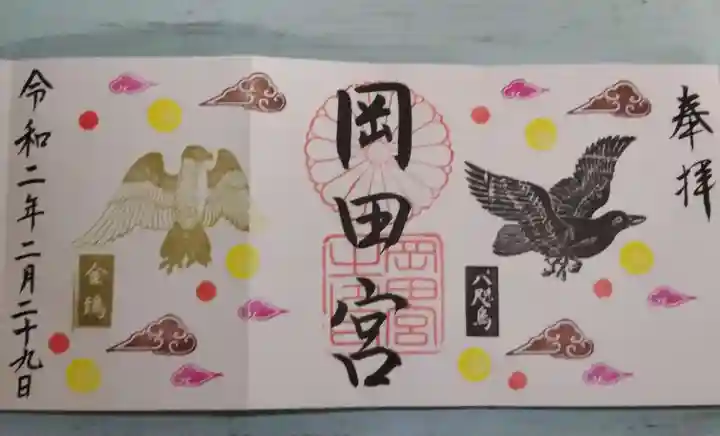 奉拝
八咫烏
岡田宮
岡田宮
金鵄
令和二年二月二十九日